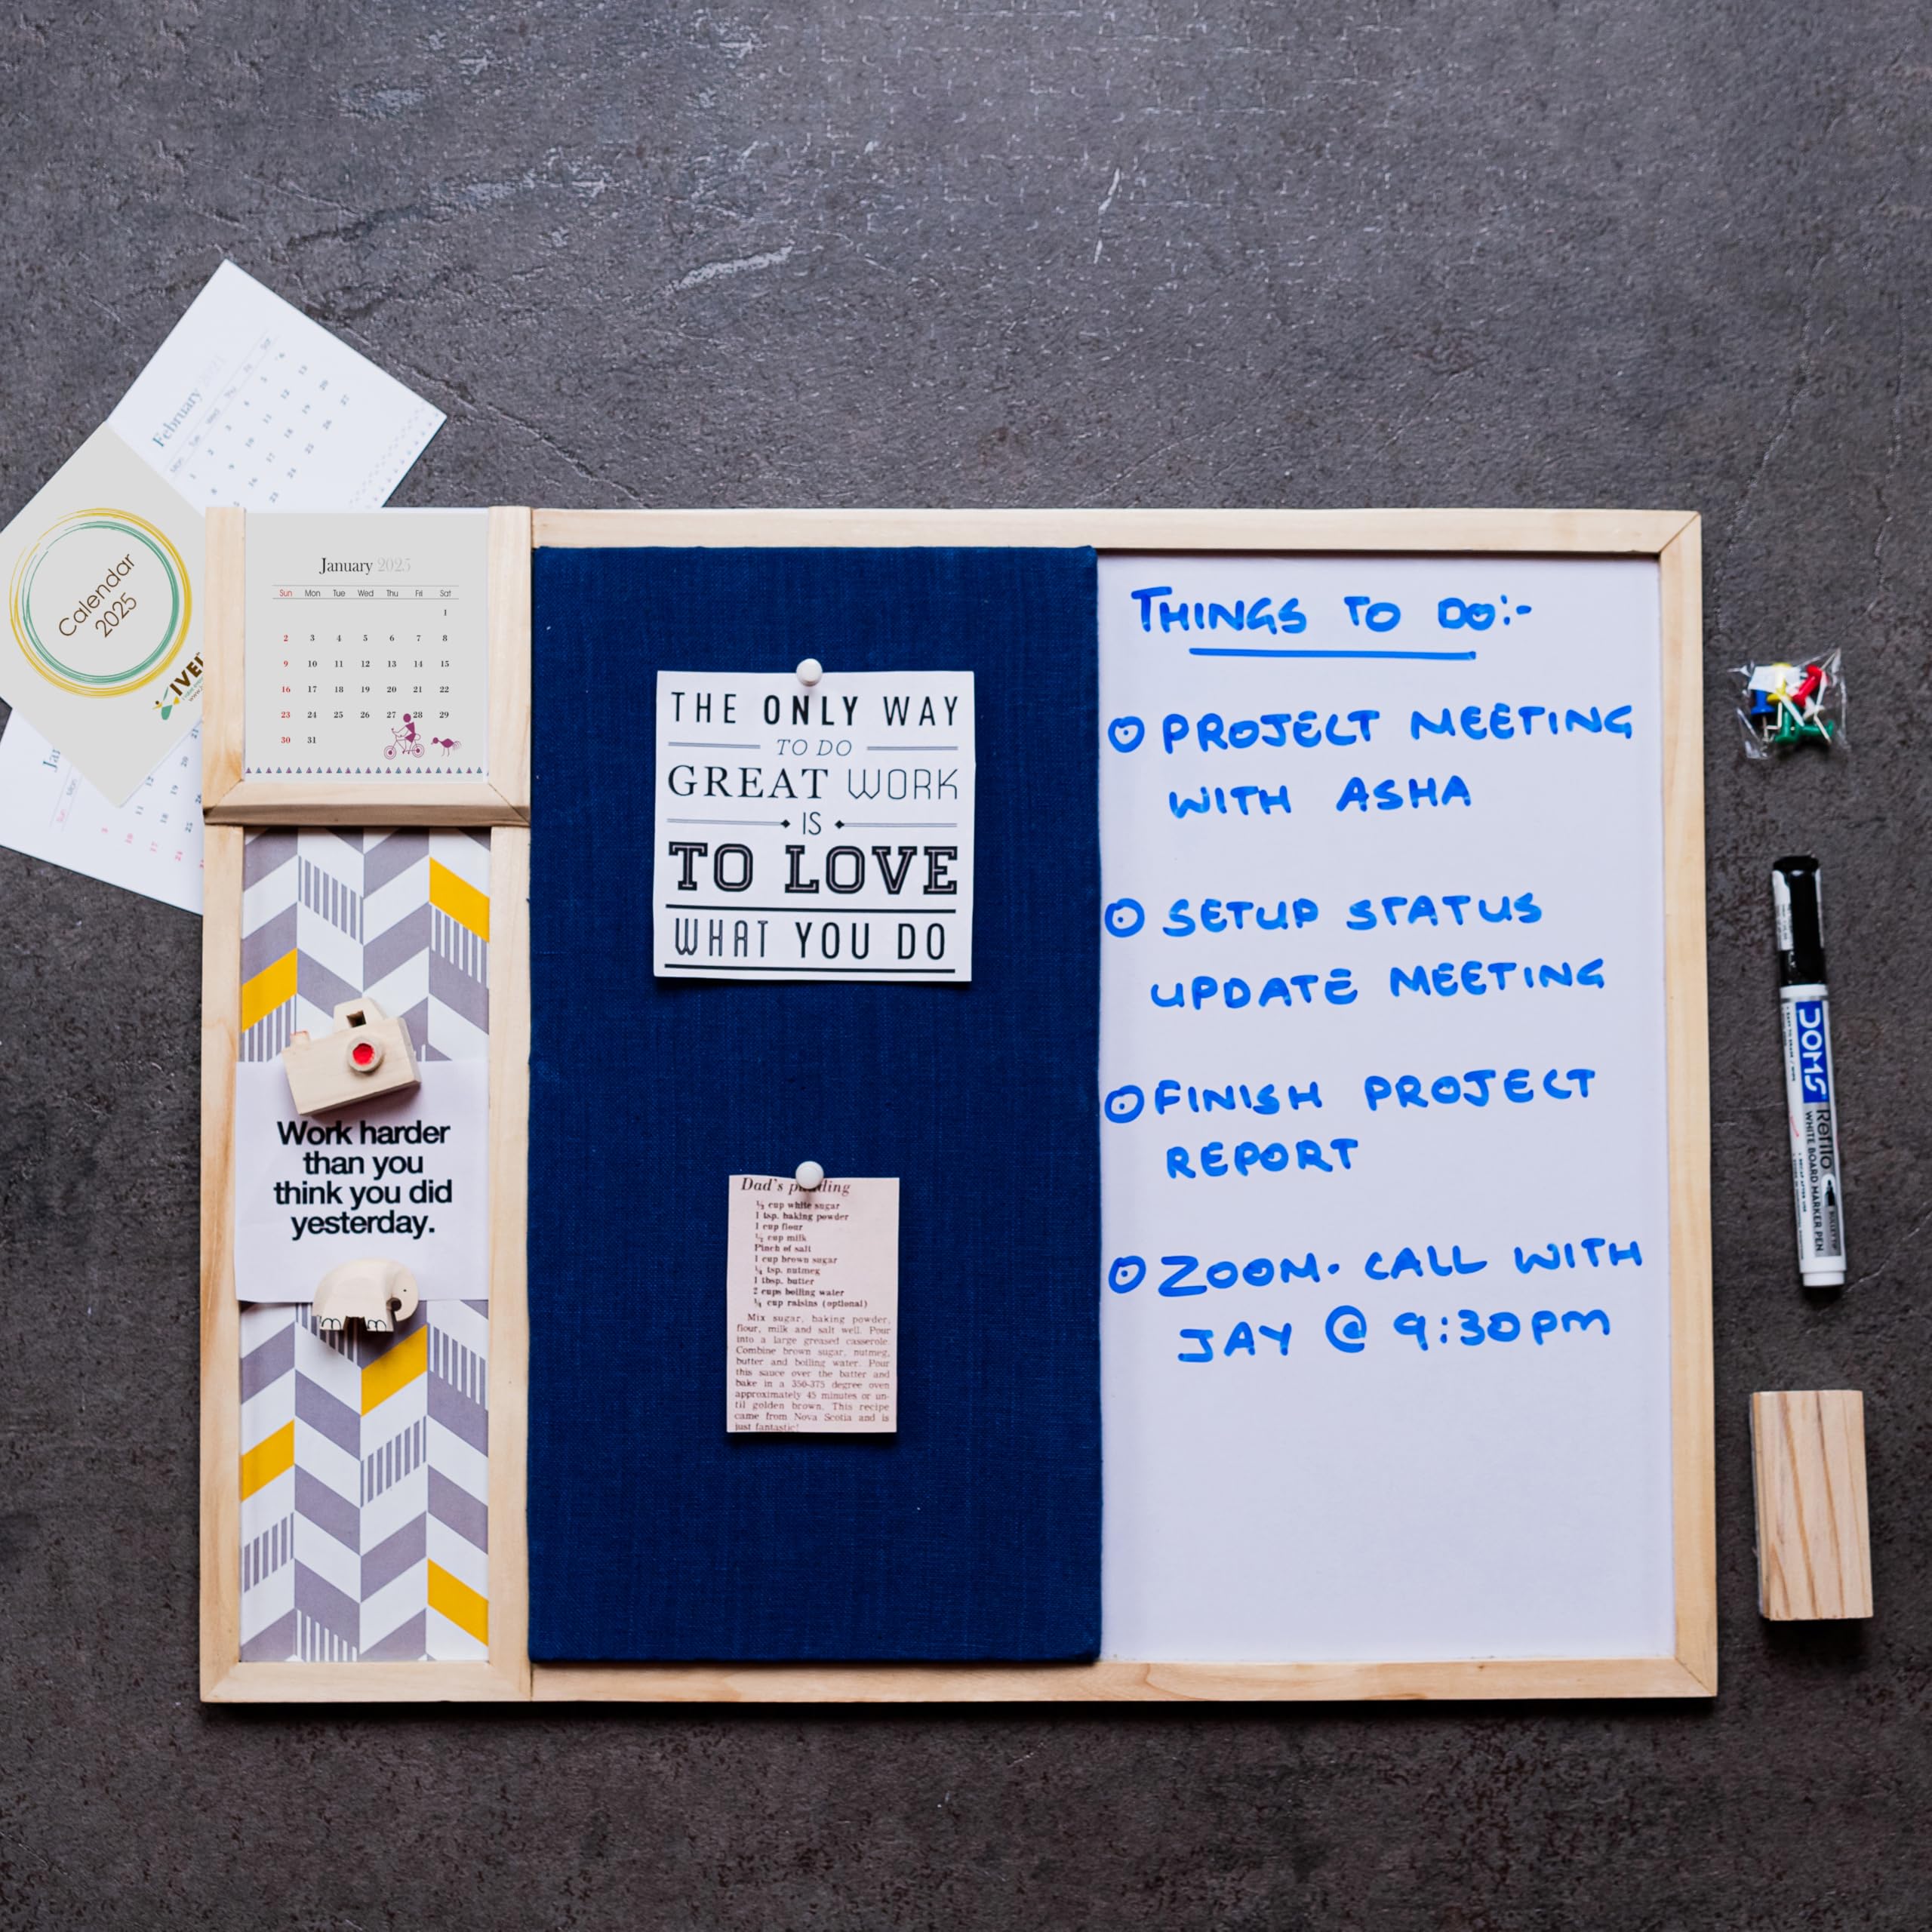 February
Calendar
2025
January 2025
Sun Mon Tue Wed Thu Fri Sat
1
2 3 4 5 6 7 8
9 10 11 12 13 14 15
16 17 18 19 20 21 22
23 24 25 26 27 28 29
30 31
Work harder
than you
think you did
yesterday.
THE ONLY WAY
TO DO
GREAT WORK
IS
TO LOVE
WHAT YOU DO
Dad's
½ cup white sugar
1 tsp. baking powder
1 cup flour
½ cup milk
Pinch of salt
1 cup brown sugar
¼ tsp. nutmeg
1 tbsp. butter
2 cups boiling water
cup raisins (optional)
Mix sugar, baking powder,
flour, milk and salt well. Pour
into a large greased casserole.
Combine brown sugar, nutmeg,
butter and boiling water. Pour
this sauce over the batter and
bake in a 350-375 degree oven
approximately 45 minutes or un-
til golden brown. This recipe
came from Nova Scotia and is
just fantastic!
THINGS TO DO:-
PROJECT MEETING
WITH ASHA
SETUP STATUS
UPDATE MEETING
FINISH PROJECT
REPORT
ZOOM. CALL WITH
JAY @ 9:30pm
DOMS
Refilo
WHITE BOARD MARKER PEN